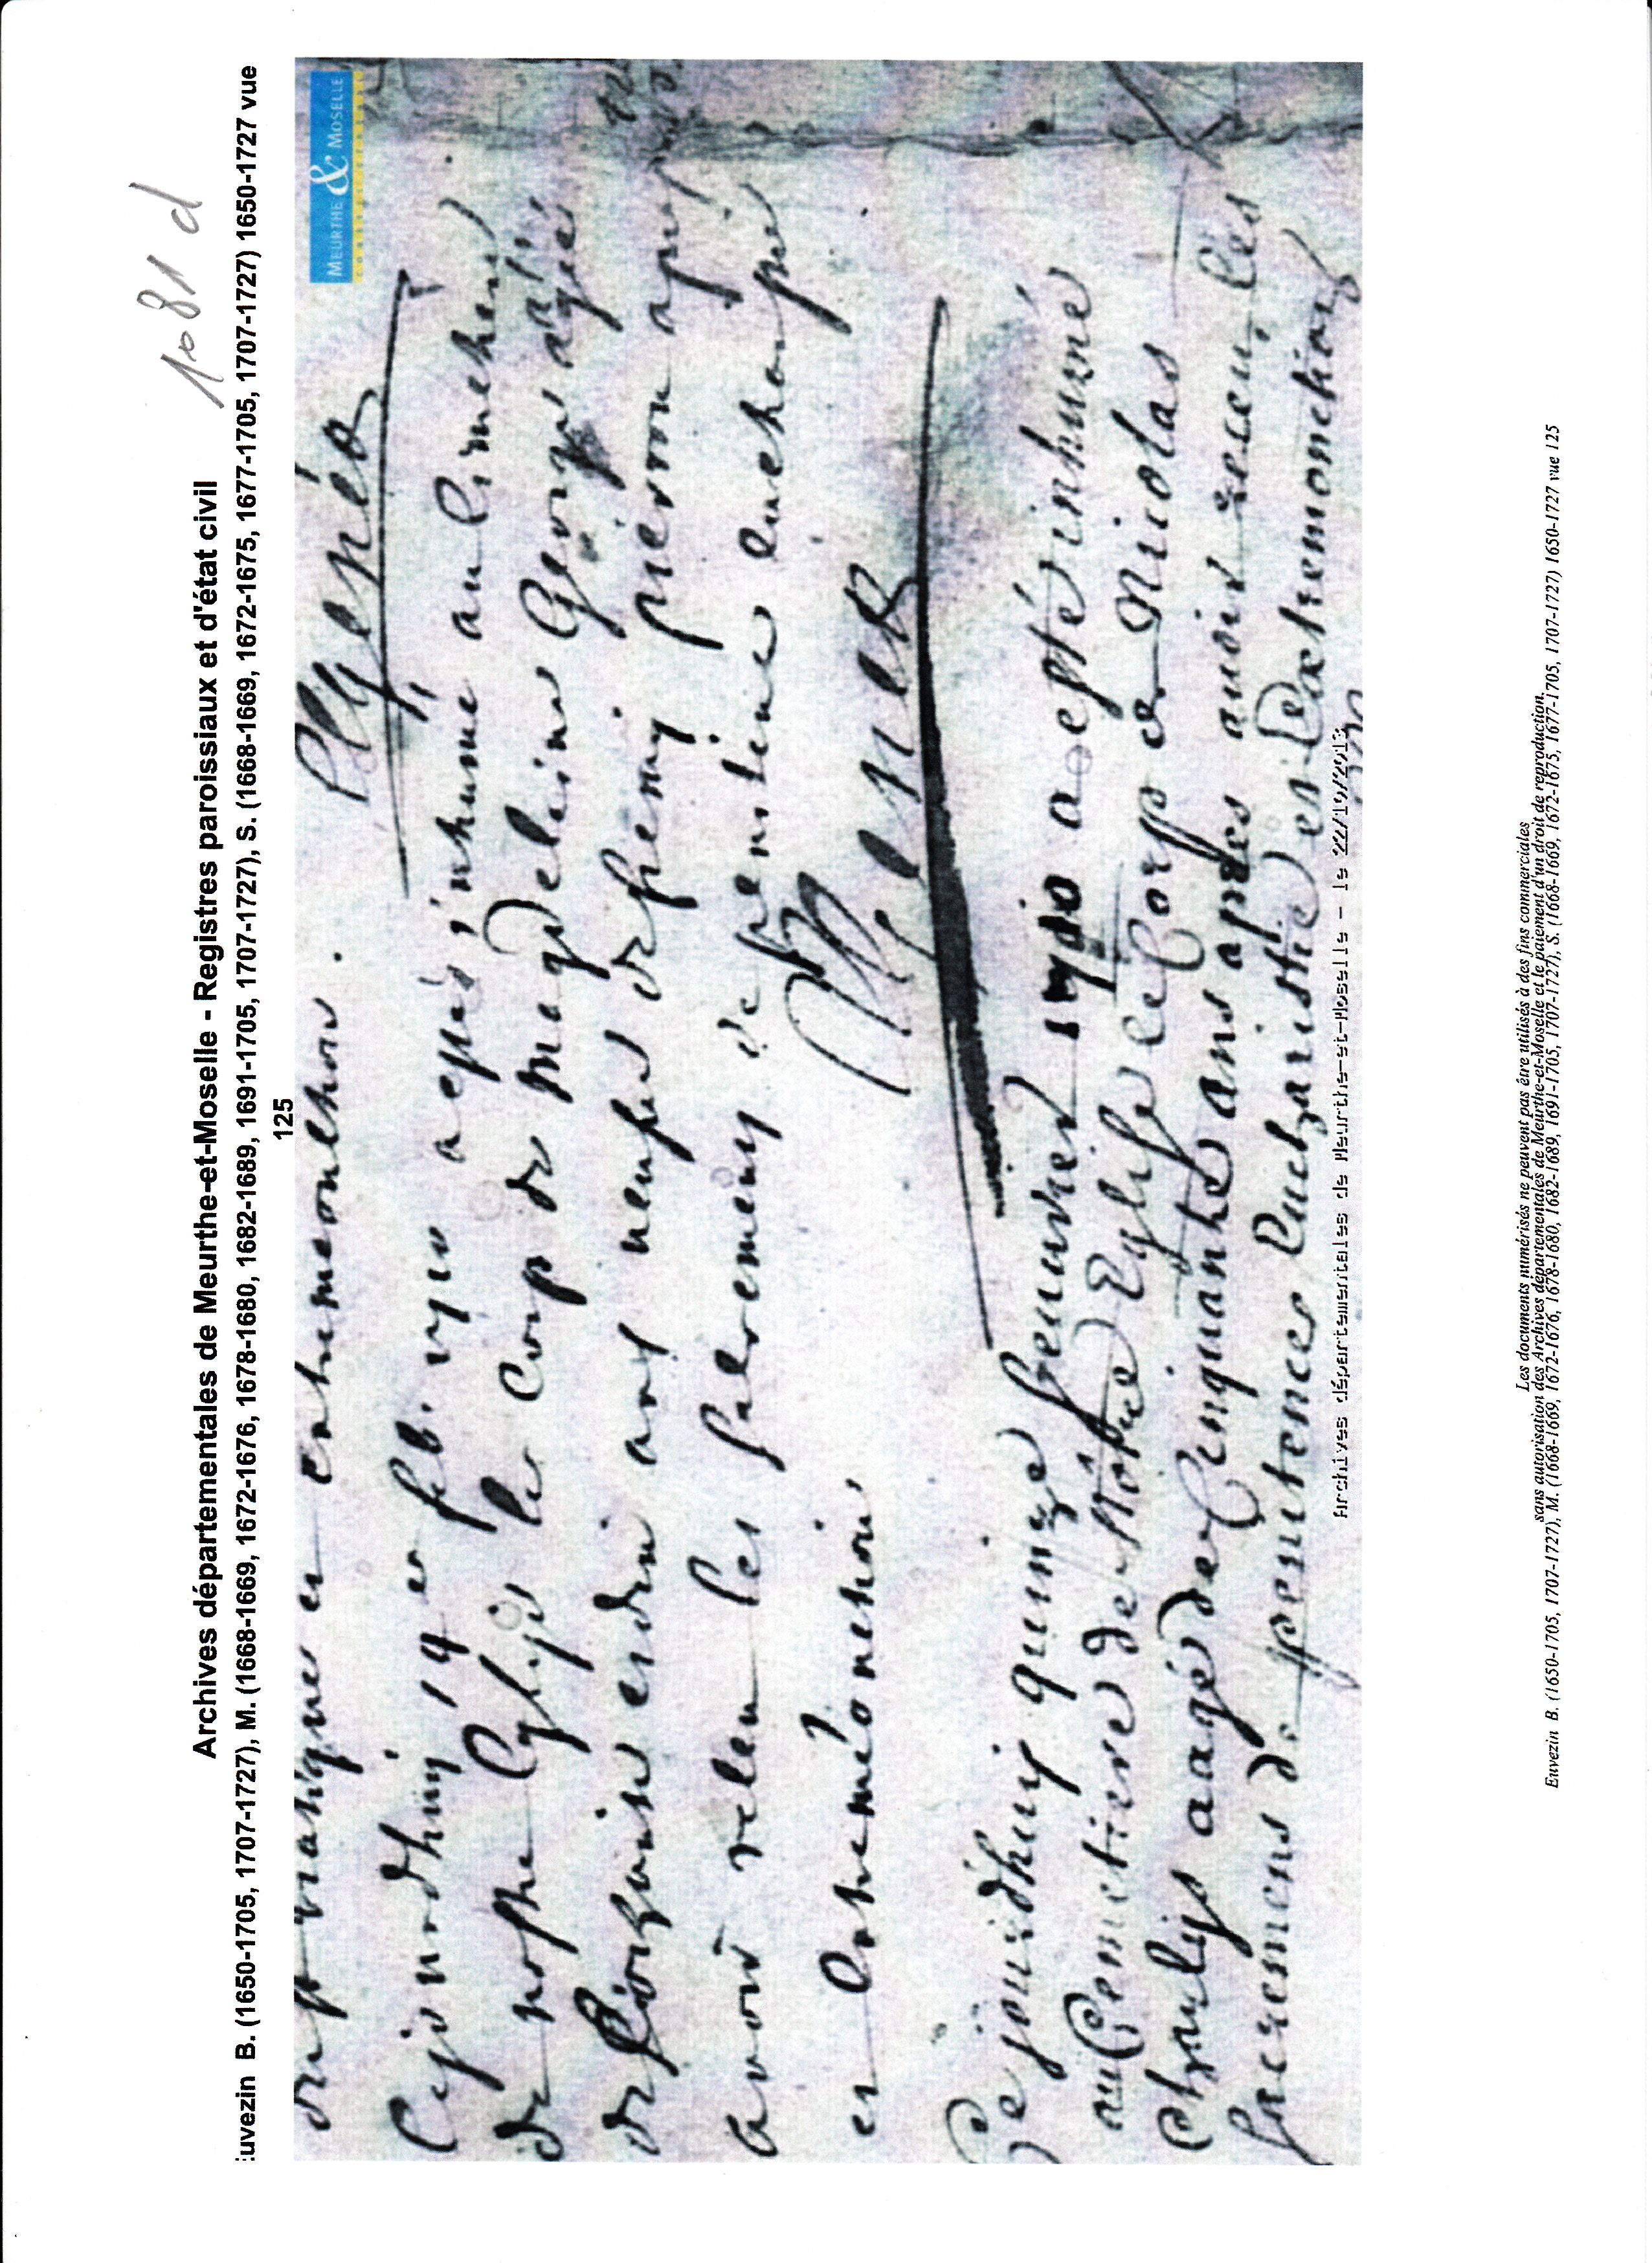 1081 d
Archives départementales de Meurthe-et-Moselle - Registres paroissiaux et d'état civil
uvezin B. (1650-1705, 1707-1727), M. (1668-1669, 1672-1676, 1678-1680, 1682-1689, 1691-1705, 1707-1727), S. (1668-1669, 1672-1675, 1677-1705, 1707-1727) 1650-1727 vue
125
MEURTHE & MOSELLE
et
Cejourdhuy 19 e feb. 1710 a esté inhumé au Cimetier
de nostre Eglise le Corp de Magdeleine George agée
de Soixante et dix neuf
avoir releu les Sacremens de penitence eucharistie
et Extremeonction
Ce jourdhuy quinze Jeanvier 1710 a esté inhumé
au Cemetiere de Nôtre Eglise le Corps de Nicolas
aagé de Cinquante ans apres auoir receu les
Sacremens de penitence Eucharistie et Extremonction
Archives départementales de Meurthe-et-Moselle - le 22/10/2013
Les documents numérisés ne peuvent pas être utilisés à des fins commerciales
sans autorisation des Archives départementales de Meurthe-et-Moselle et le paiement d'un droit de reproduction.
Euvezin B. (1650-1705, 1707-1727), M. (1668-1669, 1672-1676, 1678-1680, 1682-1689, 1691-1705, 1707-1727), S. (1668-1669, 1672-1675, 1677-1705, 1707-1727) 1650-1727 vue 125